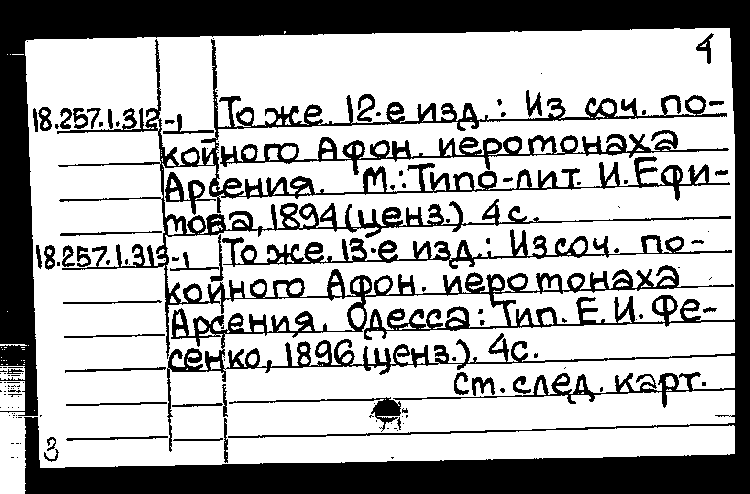 4
18.257.1.312-1 То же. 12-е изд.: Из соч. по-
койного Афон. иеромонаха
Арсения. М.: Типо-лит. И. Ефи-
мова, 1894 (ценз.). 4 с.
18.257.1.313-1 То же. 13-е изд.: Из соч. по-
койного Афон. иеромонаха
Арсения. Одесса: Тип. Е. И. Фе-
сенко, 1896 (ценз.). 4 с.
См. след. карт.
3